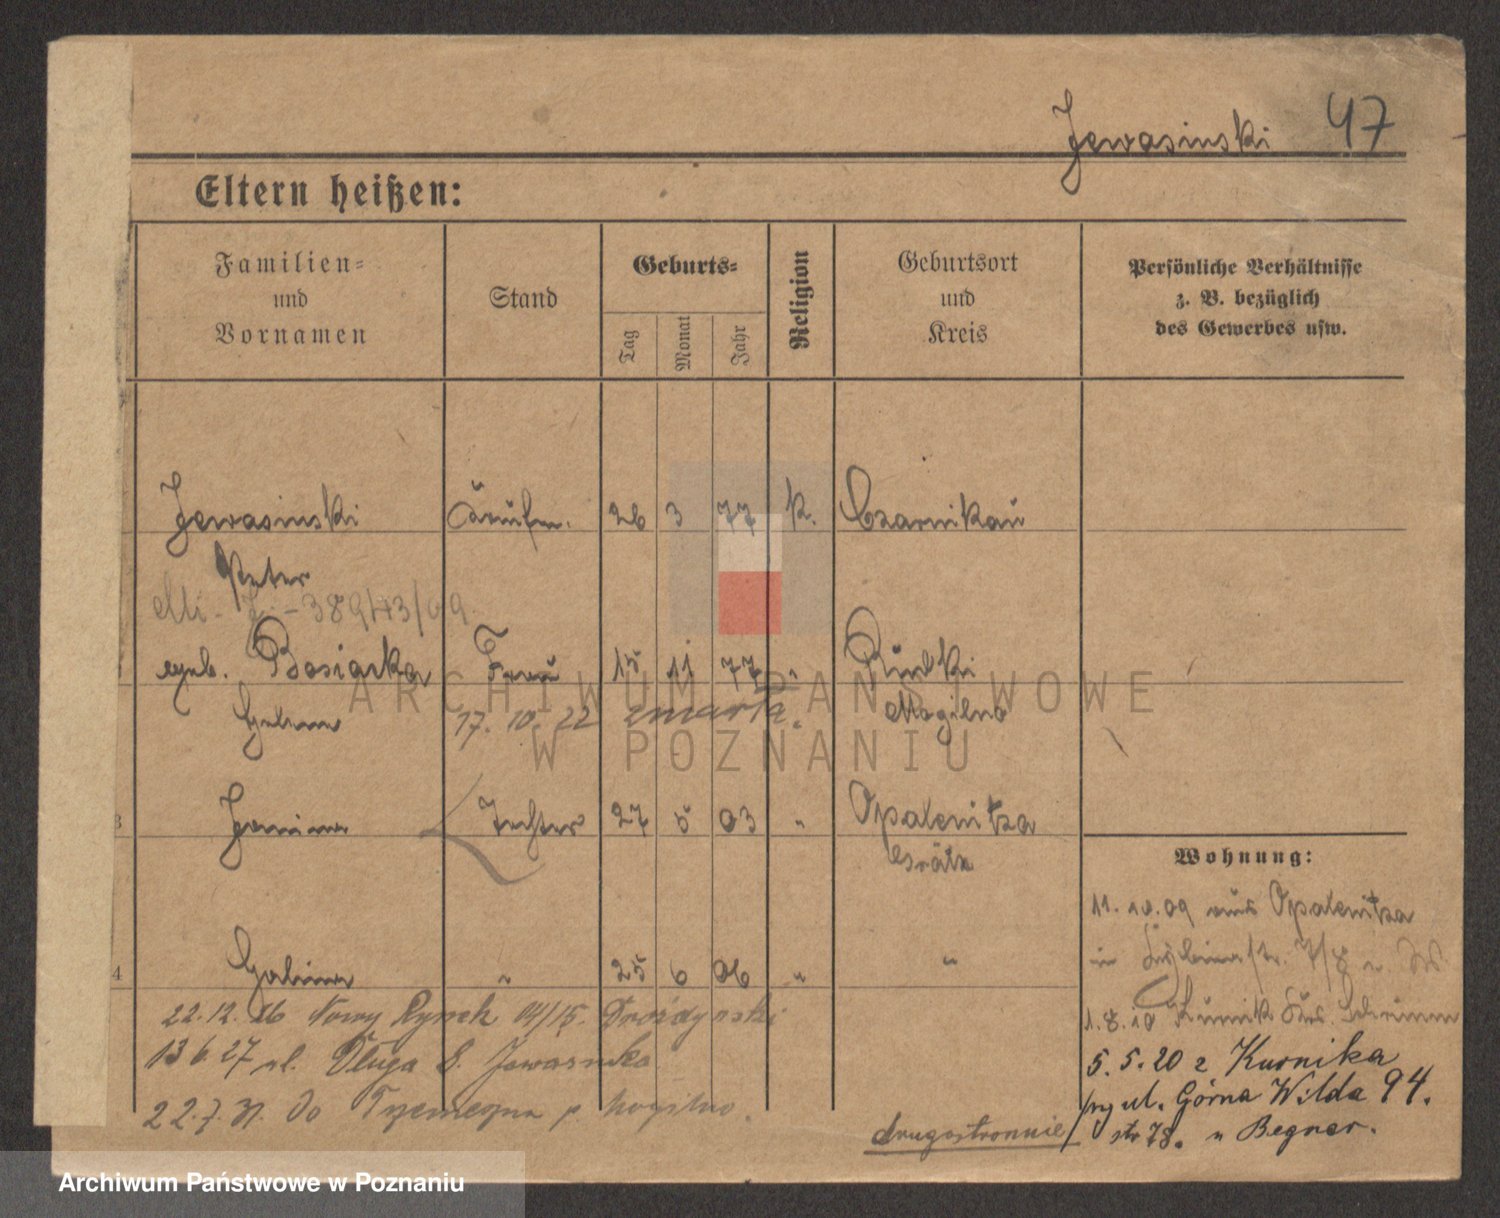 Jewasinski 47
Eltern heißen:
Familien- und Vornamen
Stand
Geburts-
Tag
Monat
Jahr
Religion
Geburtsort und Kreis
Persönliche Verhältnisse z. B. bezüglich des Gewerbes usw.
Jewasinski 26 3 77 k. Czarnikau
Peter
389/43/09
geb. Bosiacka Frau 15 11 77 " Rudki
17. 10. 22 zmarła. Mogilno
3 Janina Tochter 27 5 03 " Opalenitza
Grätz
Wohnung:
11. 10. 09 aus Opalenitza
in 7/8
4 Halina " 25 6 06 " "
22.12.26 Nowy Rynek 14/15. Drożdżyński
1.8.10 Kurnik Krs. Schrimm
13 6 27 ul. Długa 8. Jewasinska
5. 5. 20 z Kurnika
22.7.31. do Trzemeszna p. Mogilno.
przy ul. Górna Wilda 94.
drugostronnie/ str 78. u Begner.
ARCHIWUM PAŃSTWOWE
W POZNANIU
Archiwum Państwowe w Poznaniu